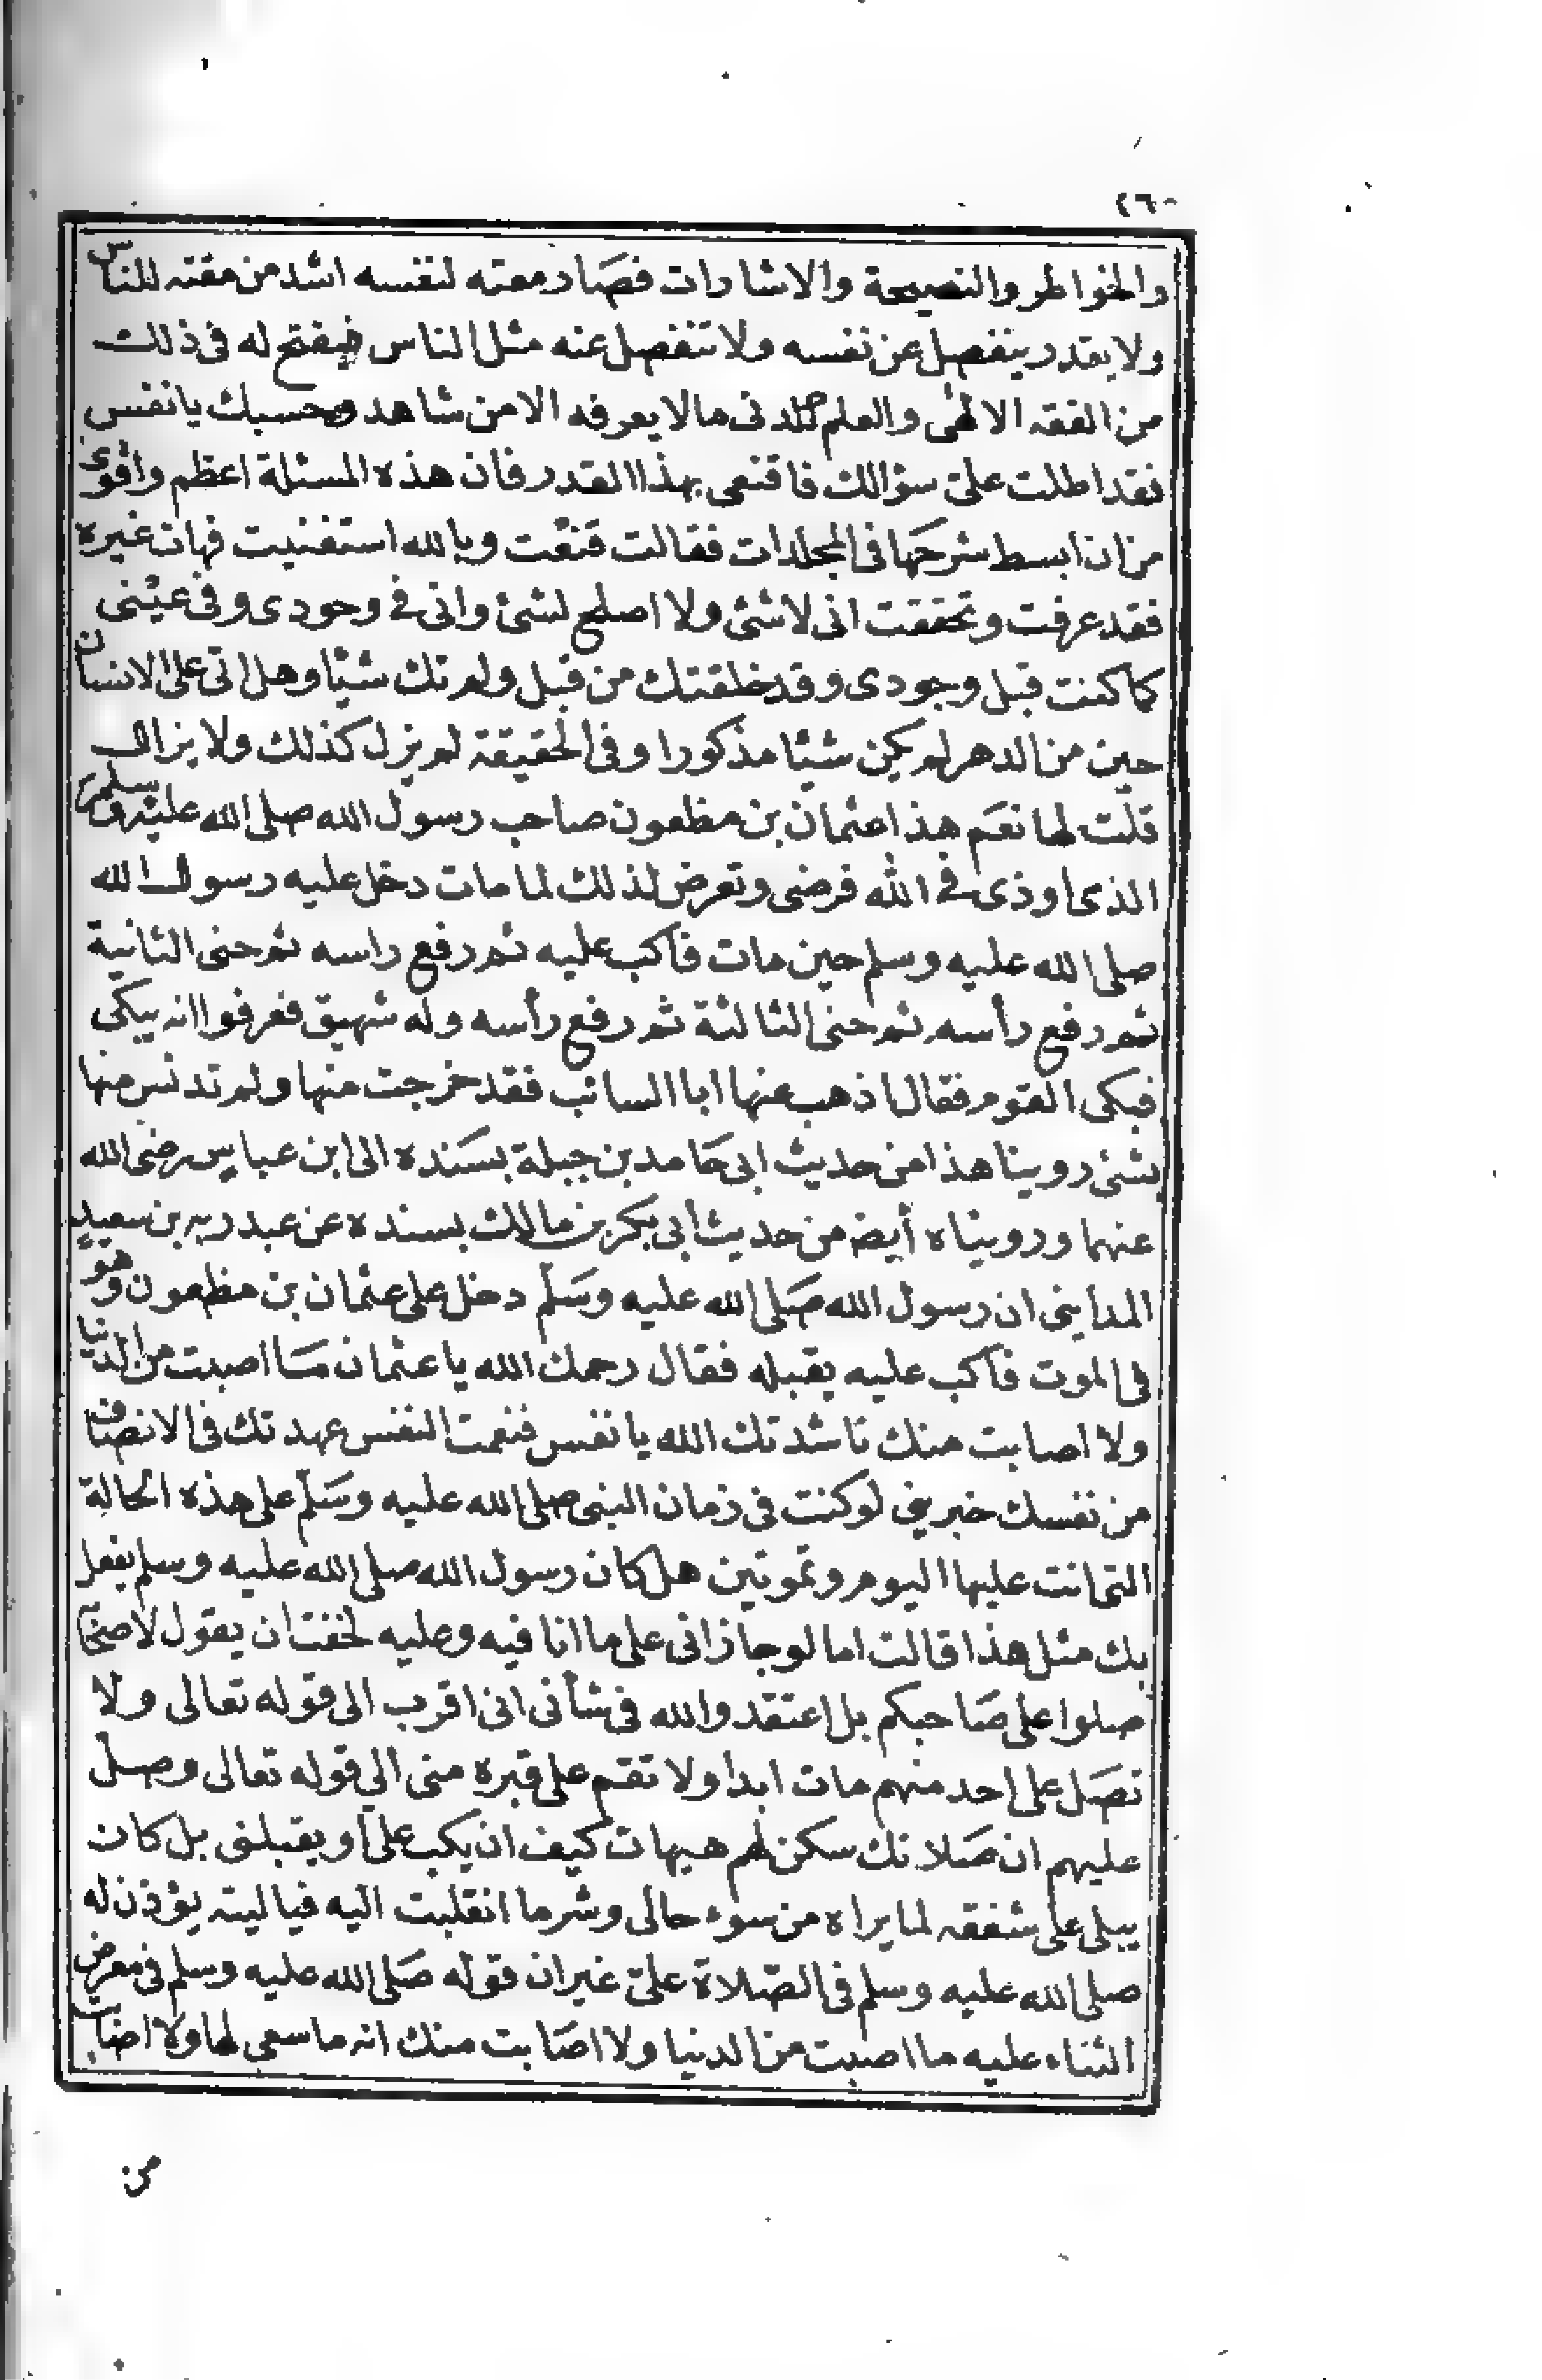 ٢٦٠
والخواطر والنصيحة والاشارات فصار مقته لنفسه اشد من مقته للناس
ولا يقدر ينفصل عن نفسه ولا تنفصل عنه مثل الناس فيفتح له في ذلك
من الفقه الالهى والعلم اللدنى مالا يعرفه الا من شاهد وحسبك يا نفس
فقد اطلت علىّ سؤالك فاقنعى بهذا القدر فان هذه المسئلة اعظم واقوى
من ان ابسط شرحها فى المجلدات فقالت قنعت وبالله استغنيت فهات غيره
فقد عرفت وتحققت انى لا شئ ولا اصلح لشئ وانى فى وجودى وفى عينى
كما كنت قبل وجودى وقد خلقتك من قبل ولم تك شيئا وهل اتى على الانسان
حين من الدهر لم يكن شيئا مذكورا وفى الحقيقة لم يزل كذلك ولا يزال
قلت لها نعم هذا عثمان بن مظعون صاحب رسول الله صلى الله عليه وسلم
الذى اوذى فى الله فرضى وتعرض لذلك لما مات دخل عليه رسول الله
صلى الله عليه وسلم حين مات فاكب عليه ثم رفع راسه ثم حنى الثانية
ثم رفع رأسه ثم حنى الثالثة ثم رفع رأسه وله شهيق فعرفوا انه يبكى
فبكى القوم فقال اذهب عنها ابا السائب فقد خرجت منها ولم تدنس منها
بشئ روينا هذا من حديث ابى حامد بن جبلة بسنده الى ابن عباس رضى الله
عنهما ورويناه أيضه من حديث ابى بكر بن مالك بسنده عن عبد ربه بن سعيد
المداينى ان رسول الله صلى الله عليه وسلم دخل على عثمان بن مظعون وهو
فى الموت فاكب عليه يقبله فقال رحمك الله يا عثمان ما اصبت من الدنيا
ولا اصابت منك ناشدتك الله يا نفس فنعمت النفس عهدتك فى الانصاف
من نفسك خبرينى لو كنت فى زمان النبى صلى الله عليه وسلم على هذه الحالة
التى انت عليها اليوم وتموتين هل كان رسول الله صلى الله عليه وسلم يفعل
بك مثل هذا قالت اما لو جازانى على ما انا فيه وعليه لخفت ان يقول لاصحابه
صلوا على صاحبكم بل اعتقد والله فى شأنى انى اقرب الى قوله تعالى ولا
تصل على احد منهم مات ابدا ولا تقم على قبره منى الى قوله تعالى وصل
عليهم ان صلاتك سكن لهم هيهات كيف ان يكب علىّ او يقبلنى بل كان
يبلى على شفقه لما يراه من سوء حالى وشر ما انقلبت اليه فيا ليته يؤذن له
صلى الله عليه وسلم فى الصلاة علىّ غير ان قوله صلى الله عليه وسلم فى معرض
الثناء عليه ما اصبت من الدنيا ولا اصابت منك انه ما سعى لها ولا اصاب
من